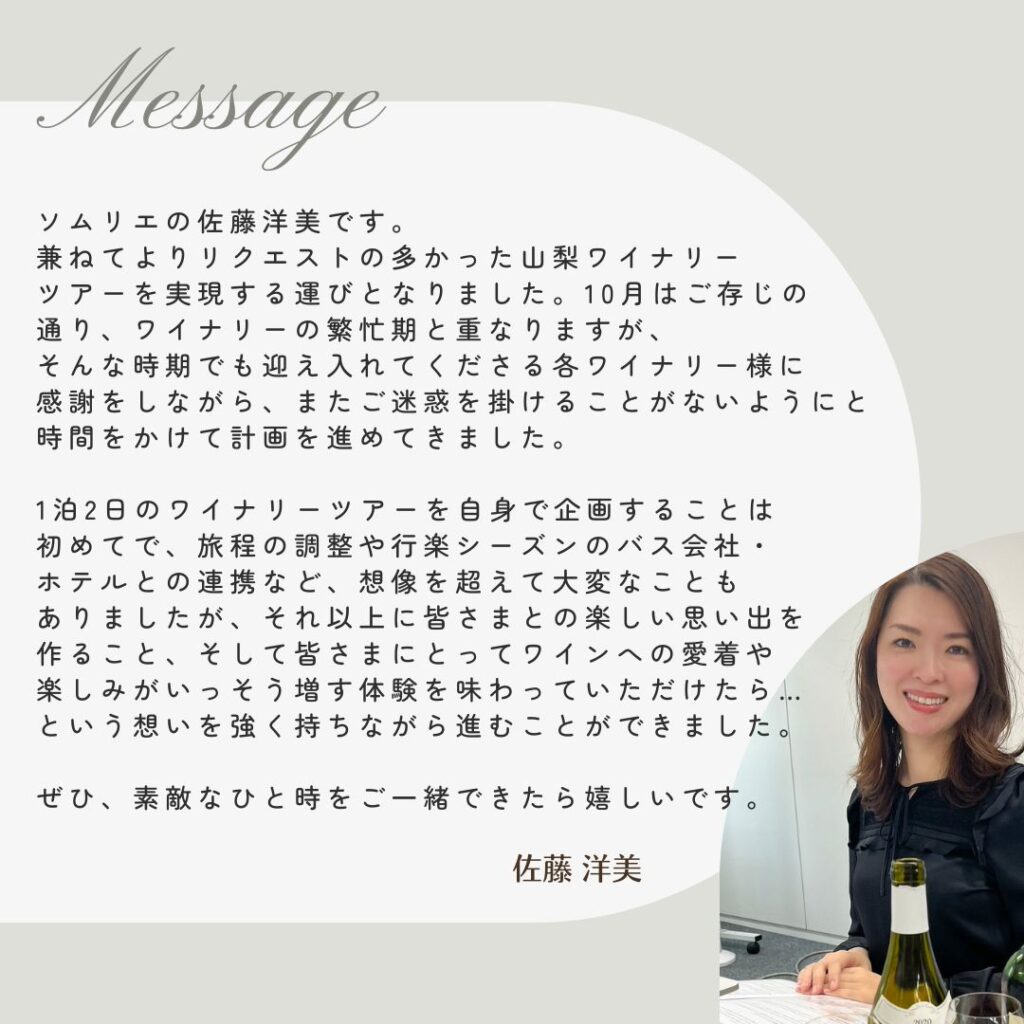 Message
ソムリエの佐藤洋美です。
兼ねてよりリクエストの多かった山梨ワイナリー
ツアーを実現する運びとなりました。10月はご存じの
通り、ワイナリーの繁忙期と重なりますが、
そんな時期でも迎え入れてくださる各ワイナリー様に
感謝をしながら、またご迷惑を掛けることがないようにと
時間をかけて計画を進めてきました。
1泊2日のワイナリーツアーを自身で企画することは
初めてで、旅程の調整や行楽シーズンのバス会社・
ホテルとの連携など、想像を超えて大変なことも
ありましたが、それ以上に皆さまとの楽しい思い出を
作ること、そして皆さまにとってワインへの愛着や
楽しみがいっそう増す体験を味わっていただけたら…
という想いを強く持ちながら進むことができました。
ぜひ、素敵なひと時をご一緒できたら嬉しいです。
佐藤 洋美
2020